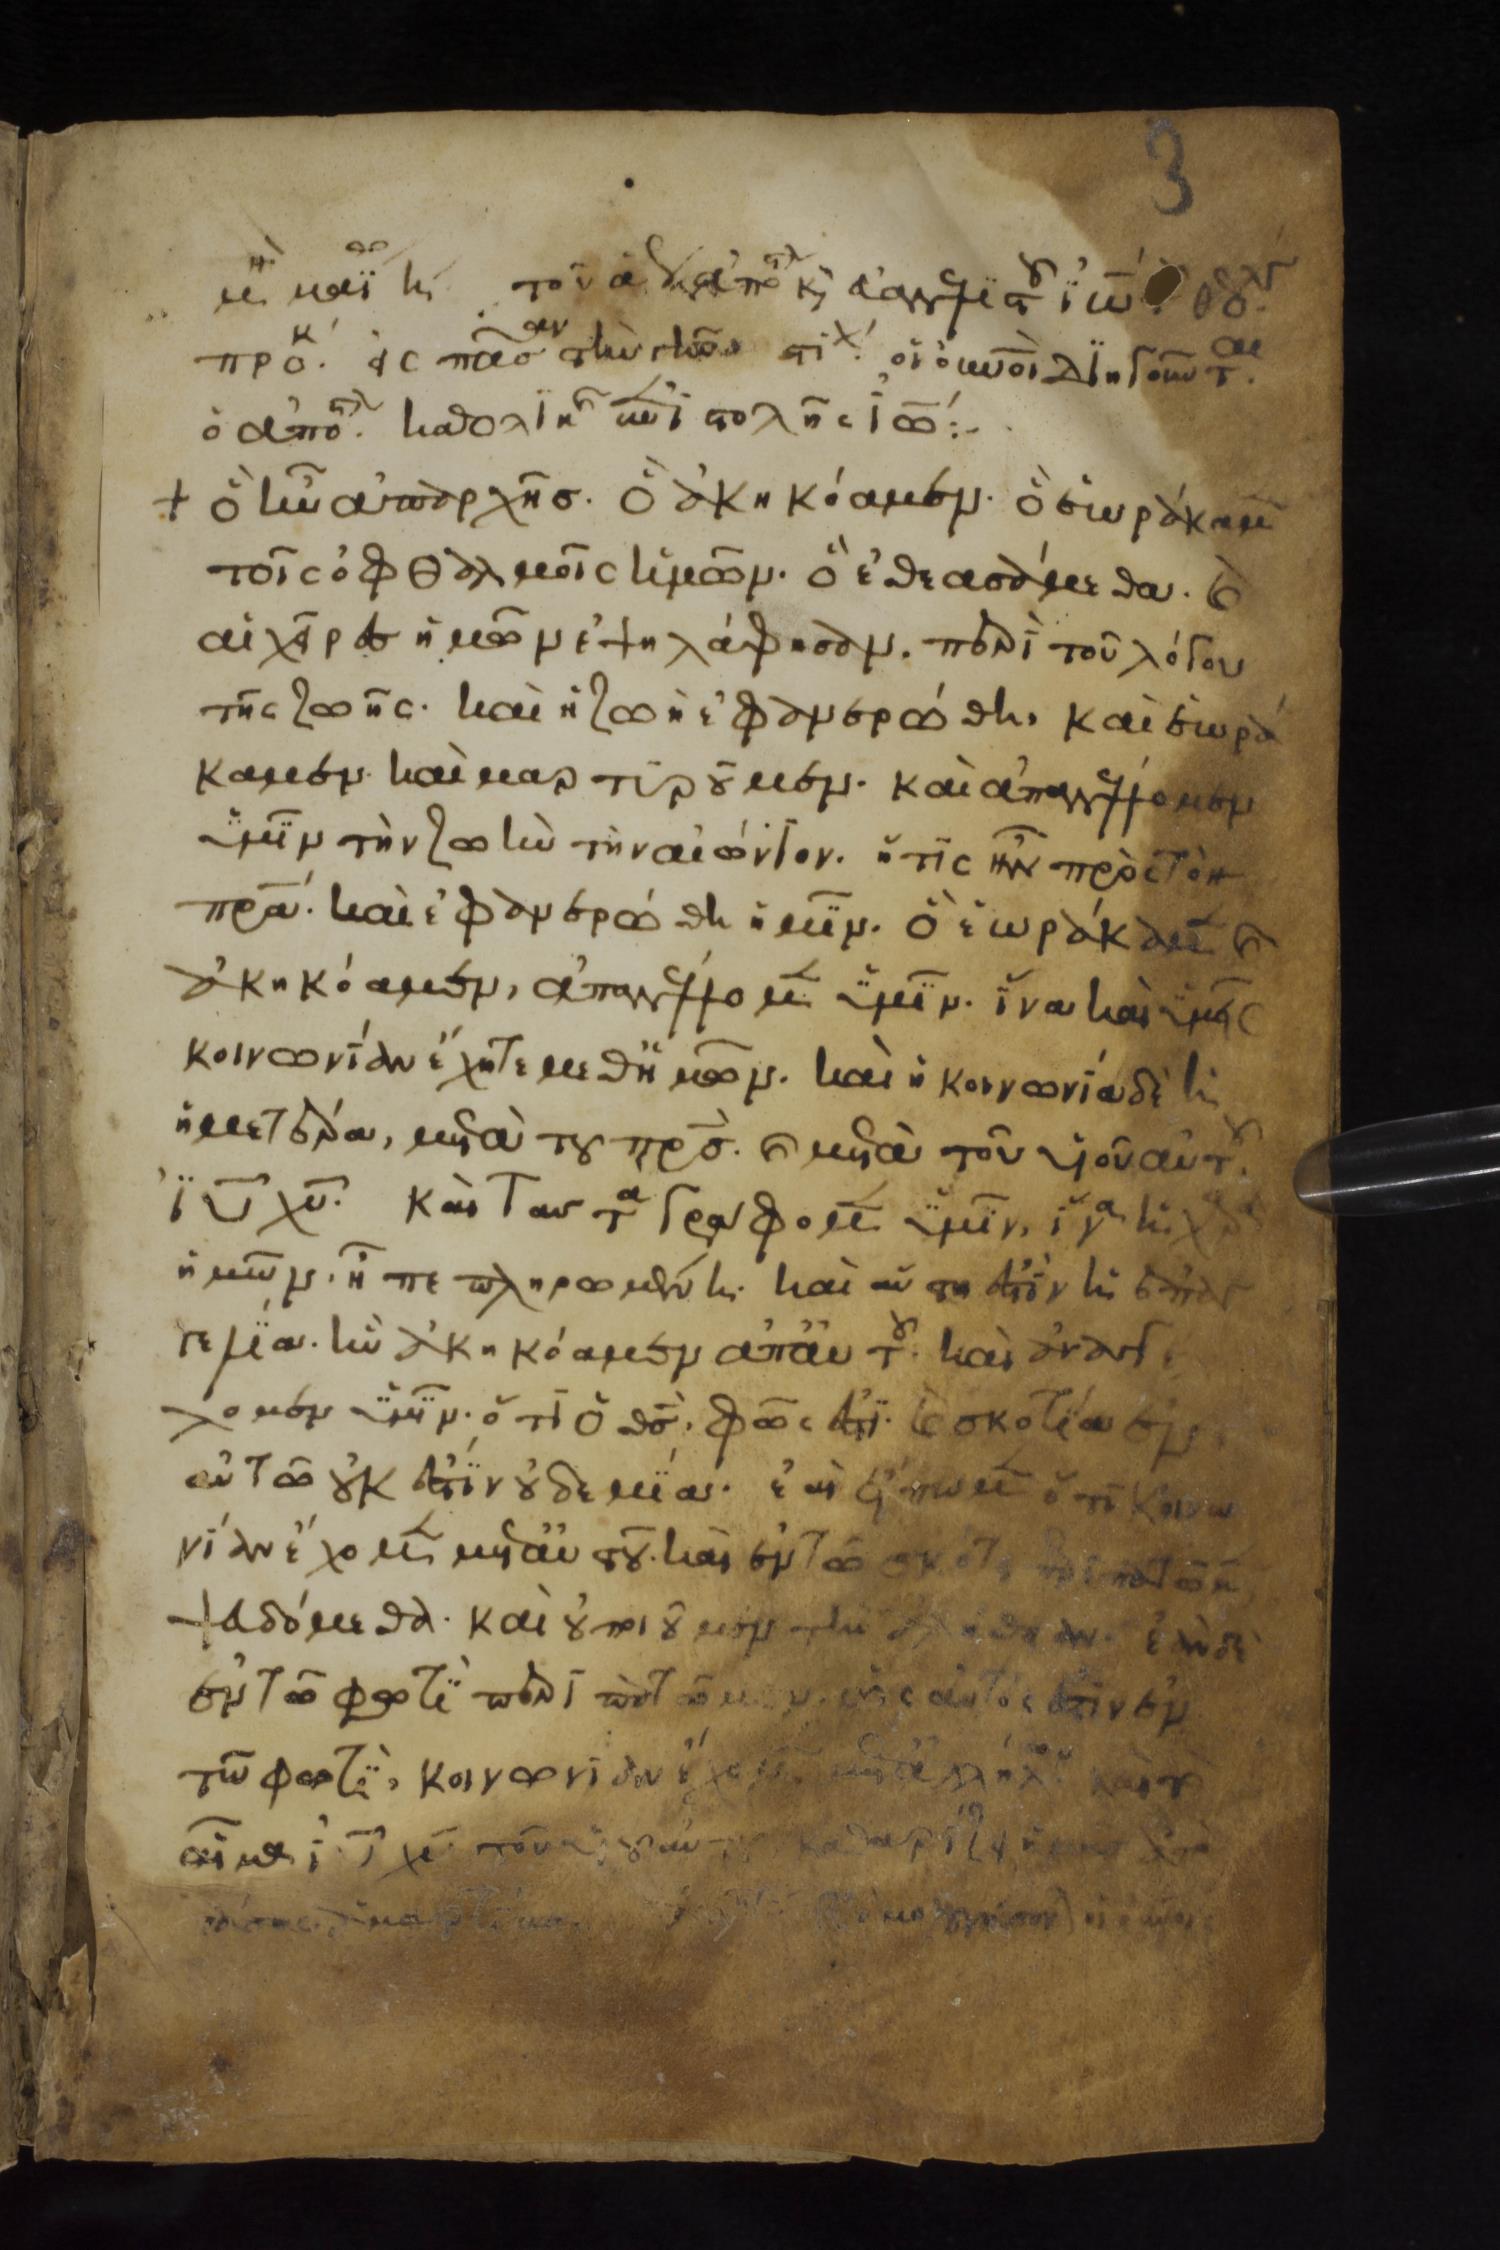 3
μη μαΐ η τοῦ ἁγ ἀπο κ ευαγγελιστου ϊω θεολγ
προκ. εἰς πᾶσαν την γην στιχ. οἱ οὐνοὶ διηγουνται
ὁ αποστλ. καθολικ ἐπιστολῆς ἰω:
+ Ὃ ἦν ἀπαρχῆσ. ὃ ἀκηκόαμεν. ὃ ἑωράκαμεν
τοῖς ὀφθαλμοῖς ἡμῶν. ὃ ἐθεασάμεθα. καὶ
αἱ χεῖρες ἡμῶν ἐψηλάφησαν. περὶ τοῦ λόγου
τῆς ζωῆς. καὶ ἡ ζωὴ ἐφανερώθη, καὶ ἑωρά
καμεν. καὶ μαρτυροῦμεν. καὶ ἀπαγγέλλομεν
ὑμῖν τὴν ζωὴν τὴν αἰώνιον. ἥτις ἦν πρὸς τὸν
πρα. καὶ ἐφανερώθη ἡμῖν. ὃ ἑωράκαμεν καὶ
ἀκηκόαμεν, ἀπαγγέλλομεν ὑμῖν. ἵνα καὶ ὑμεῖς
κοινωνίαν ἔχητε μεθ ἡμῶν. καὶ ἡ κοινωνία δὲ ἡ
ἡμετέρα, μετὰ του πρσ. καὶ μετὰ τοῦ υἱοῦ αὐτου.
ϊυ χυ. καὶ ταυτα γράφομεν ὑμῖν, ἵνα ἡ χαρὰ
ἡμῶν. ᾖ πεπληρωμένη. καὶ αὕτη ἐστὶν ἡ ἐπαγ
γελία. ἣν ἀκηκόαμεν ἀπ αὐτου. καὶ ἀναγγέλ
λομεν ὑμῖν. ὅτι ὁ θσ. φῶς ἐστϊ. καὶ σκοτία ἐν
αὐτῶ οὐκ ἔστιν οὐδεμία. ἐὰν εἴπωμεν ὅτι κοινω
νίαν ἔχομεν μετ αὐτοῦ. καὶ ἐν τῶ σκότει περιπατῶμεν
ψευδόμεθα. καὶ οὐ ποιοῦμεν τὴν ἀλήθειαν. ἐὰν δὲ
ἐν τῶ φωτὶ περιπατῶμεν. ὡς αὐτός ἐστιν ἐν
τῶ φωτὶ, κοινωνίαν ἔχομεν μετ ἀλλήλων καὶ τὸ
αἷμα ϊυ χυ τοῦ υἱοῦ αὐτου καθαρίζει ἡμᾶς ἀπὸ
πάσης ἁμαρτίας.